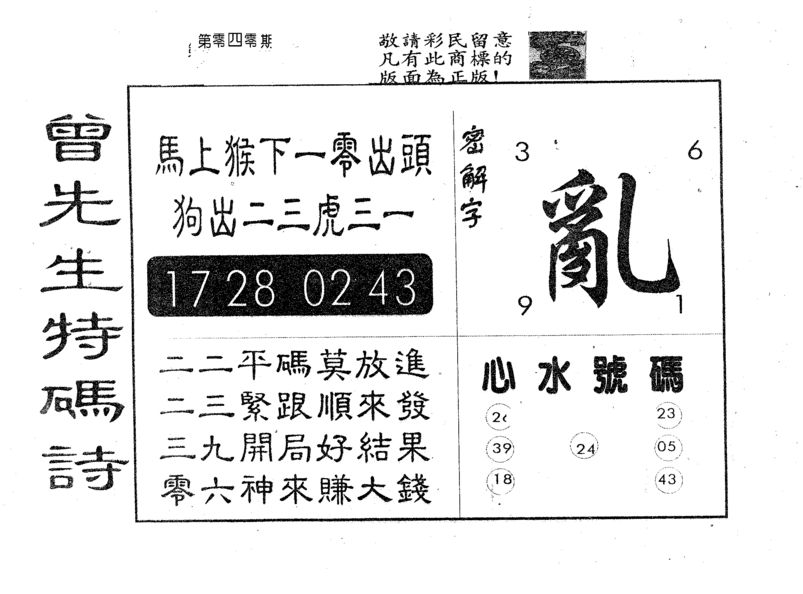 第零四零期
敬請彩民留意
凡有此商標的
版面為正版!
曾先生特碼詩
馬上猴下一零出頭
狗出二三虎三一
17 28 02 43
密解字
3 6
亂
9 1
二二平碼莫放進
二三緊跟順來發
三九開局好結果
零六神來賺大錢
心水號碼
26 23
39 24 05
18 43